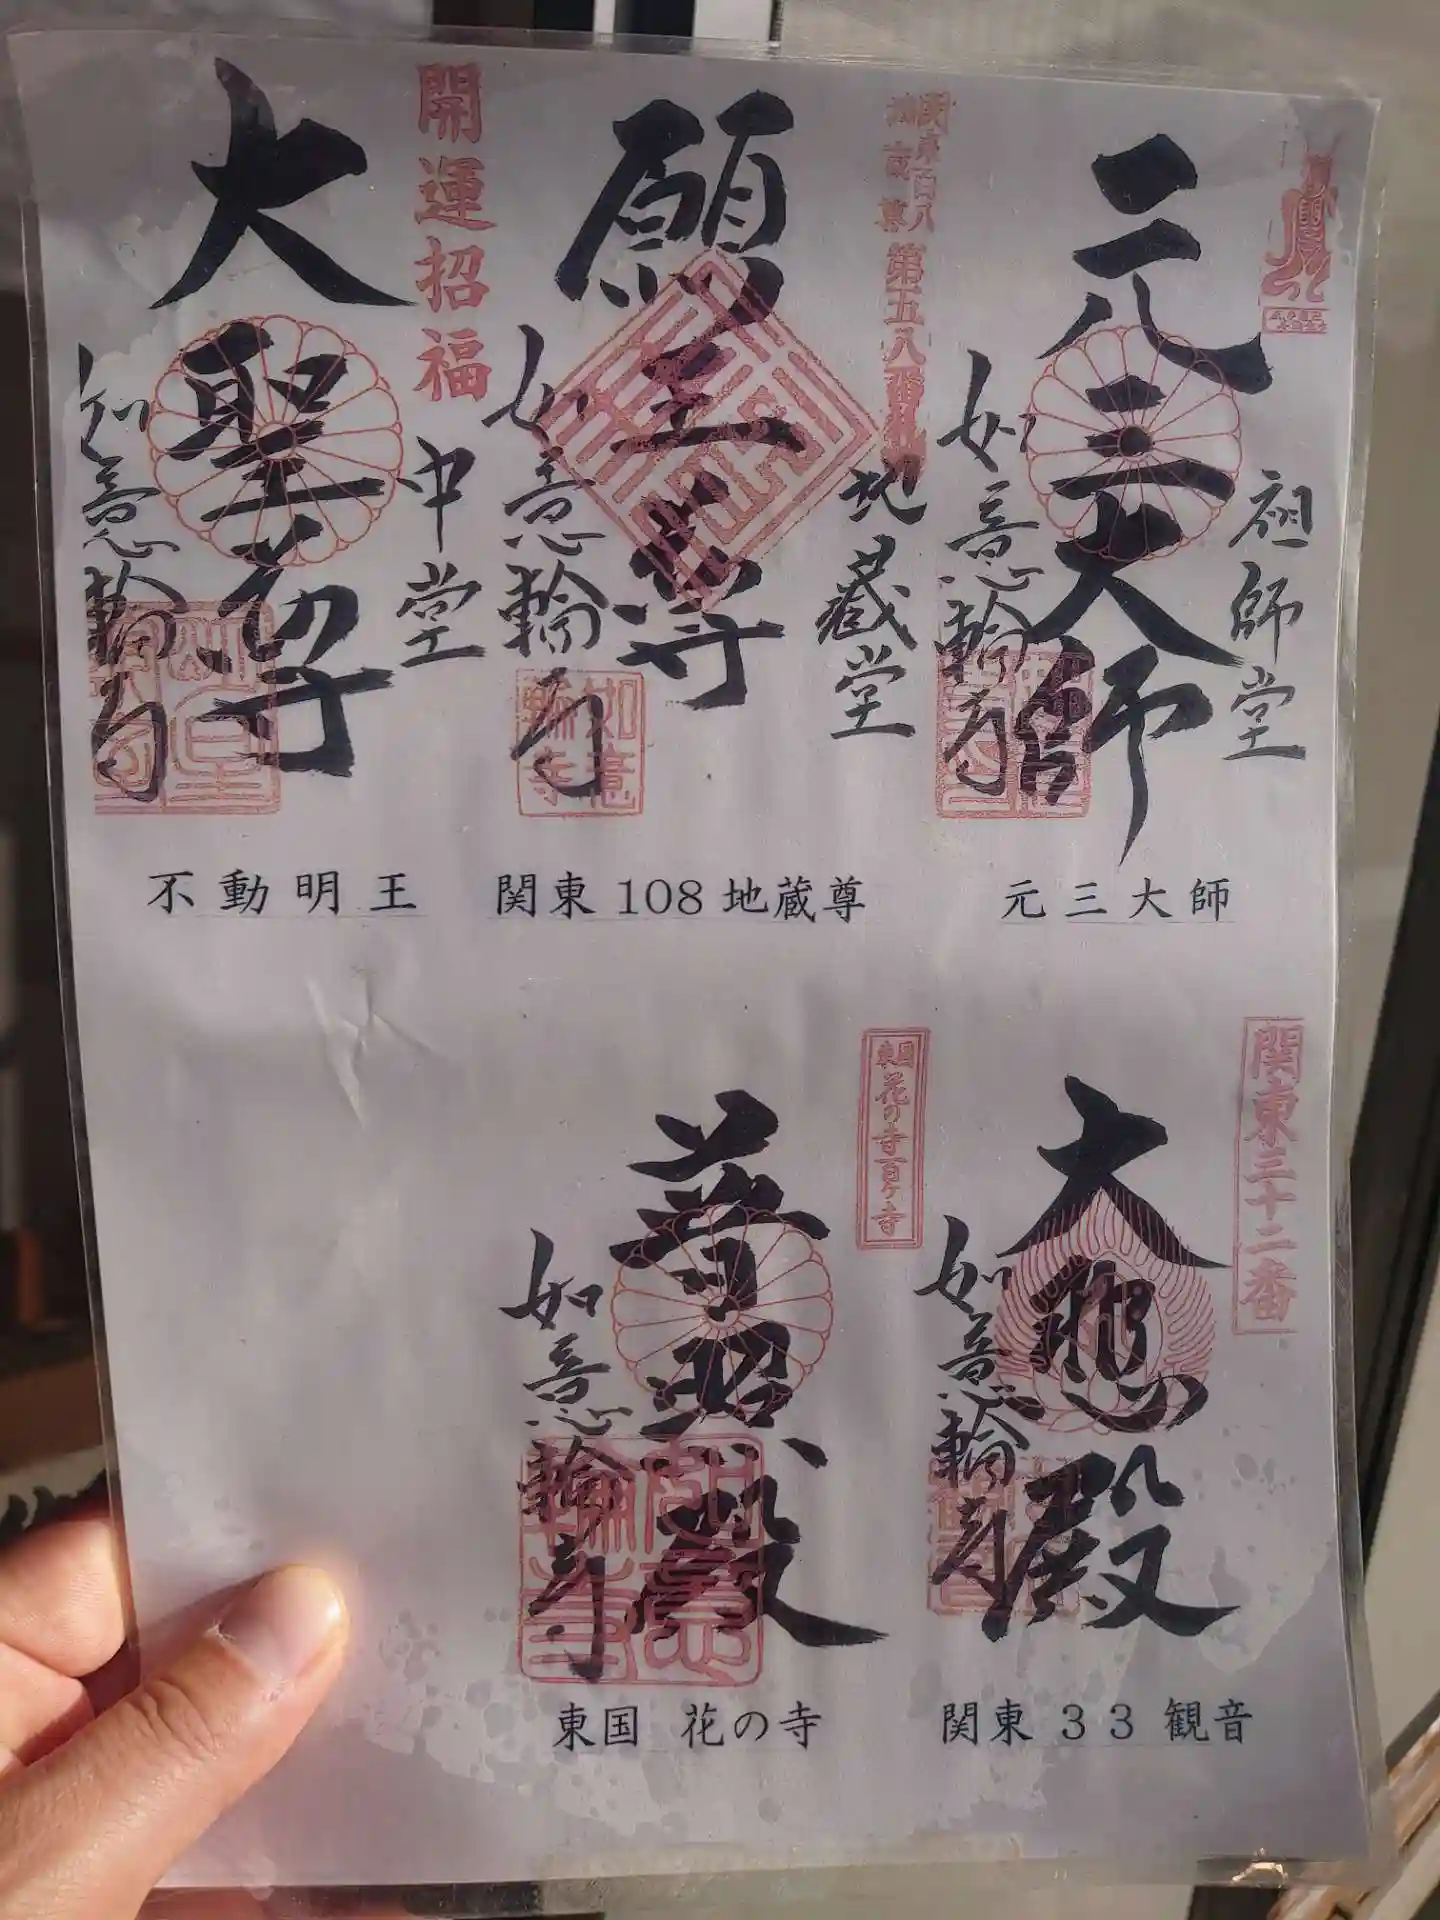 元三大師
祖師堂
如意輪寺
元三大師
関東百八
地蔵尊
第五八番札所
願王尊
地蔵堂
如意輪寺
如意輪寺
関東108地蔵尊
開運招福
大聖尊
中堂
如意輪寺
不動明王
関東三十二番
大悲殿
如意輪寺
関東33観音
東国
花の寺百ヶ寺
普照殿
如意輪寺
如意輪寺
東国 花の寺